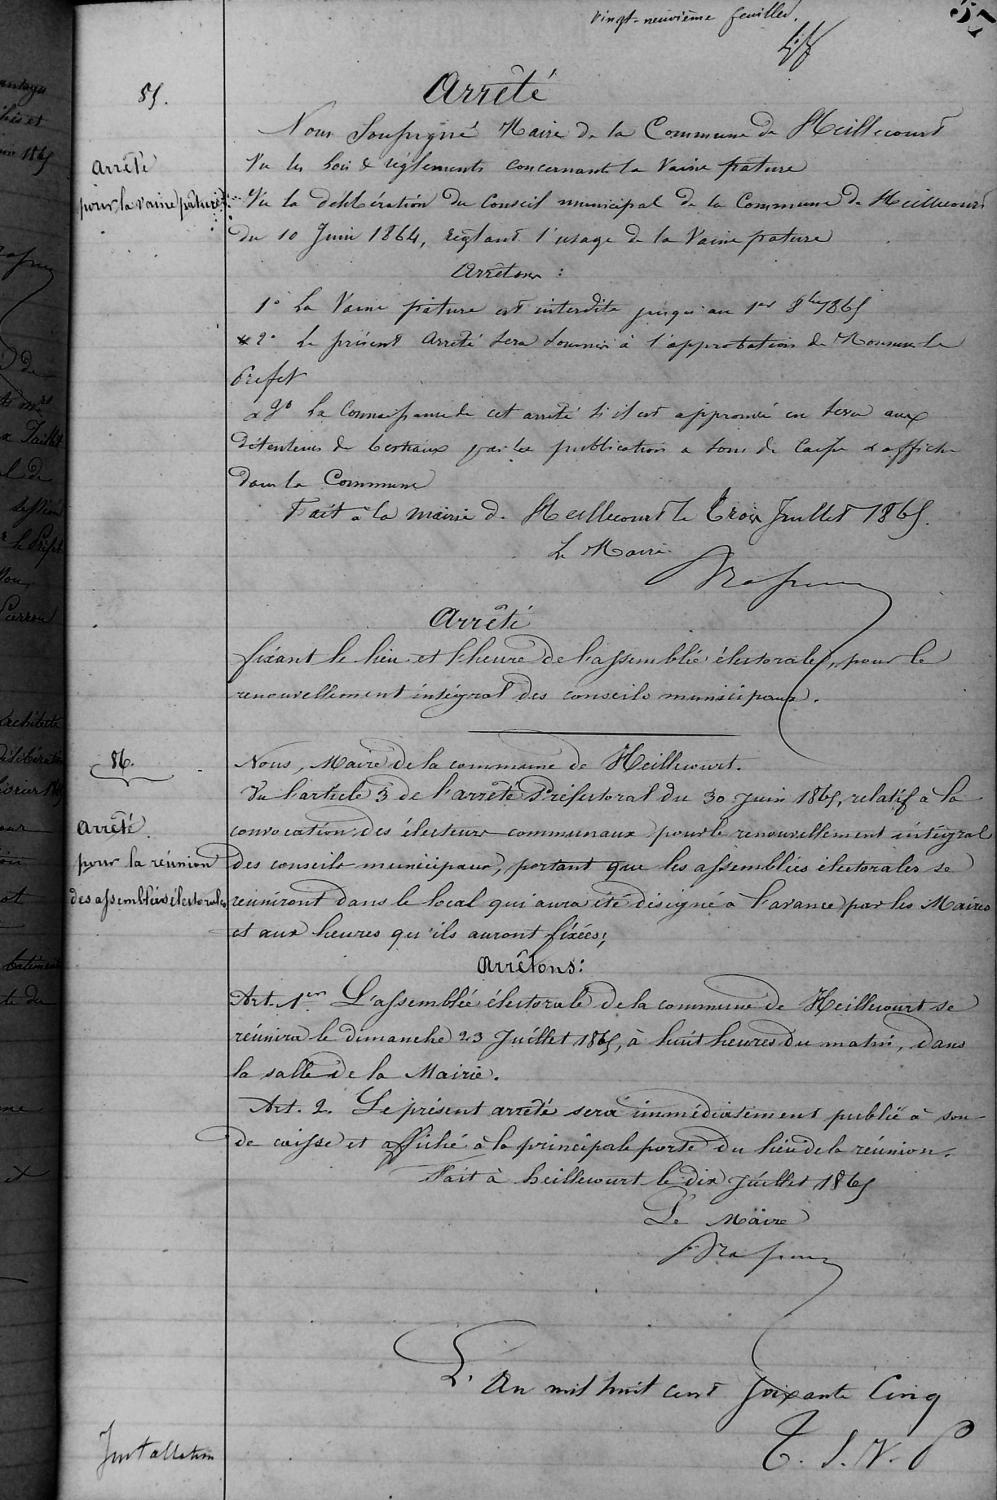 vingt-neuvième feuillet.
57
85.
Arrêté
pour la vaine pâture
Arrêté
Nous Soussigné Maire de la Commune de Heillecourt
Vu les Lois & règlements concernant la Vaine pature
Vu la délibération du Conseil municipal de la Commune de Heillecourt
du 10 Juin 1864, réglant l'usage de la Vaine pature
Arrêtons :
1° La Vaine pature est interdite jusqu'au 1er 8bre 1865
2° Le présent Arrêté sera soumis à l'approbation de Monsieur le
Préfet
La Connaissance de cet arrêté s'il est approuvé en sera aux
détenteurs de bestiaux par les publication a son de Caisse & affiche
dans la Commune
Fait à la mairie de Heillecourt le Trois Juillet 1865.
Le Maire
Arrêté
fixant le lieu et l'heure de l'assemblée électorale, pour le
renouvellement intégral des conseils municipaux.
86.
Arrêté
pour la réunion
des assemblées électorales
Nous, Maire de la commune de Heillecourt.
Vu l'article 3 de l'arrêté Préfectoral du 30 Juin 1865, relatif à la
convocation des électeurs communaux pour le renouvellement intégral
des conseils municipaux, portant que les assemblées électorales se
réuniront dans le local qui aura été désigné à l'avance par les Maires
et aux heures qu'ils auront fixées;
Arrêtons:
Art. 1er L'assemblée électorale de la commune de Heillecourt se
réunira le dimanche 23 Juillet 1865, à huit heures du matin, dans
la salle de la Mairie.
Art. 2. Le présent arrêté sera immédiatement publié à son
de caisse et affiché à la principale porte du lieu de la réunion.
Fait à heillecourt le dix Juillet 1865
Le Maire
L'An mil huit cent soixante Cinq
Installation
T. S. V. P